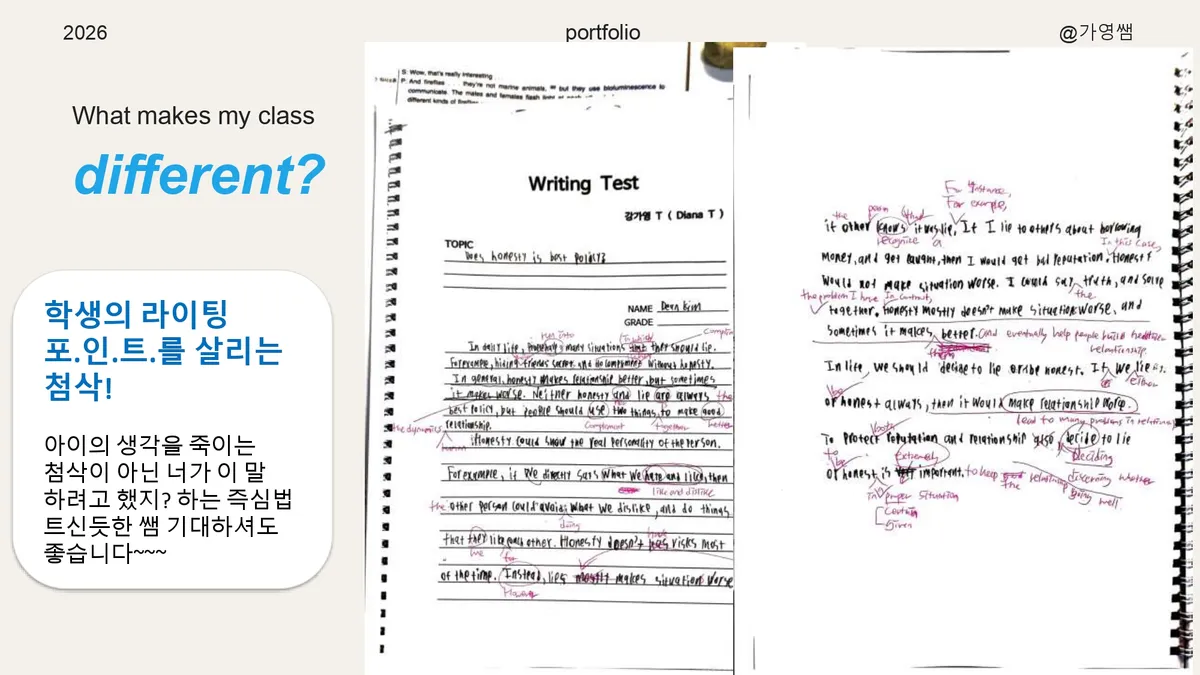 2026
portfolio
@가영쌤
What makes my class
different?
학생의 라이팅
포.인.트.를 살리는
첨삭!
아이의 생각을 죽이는
첨삭이 아닌 너가 이 말
하려고 했지? 하는 즉심법
트신듯한 쌤 기대하셔도
좋습니다~~~
S: Wow, that's really interesting
P: And fireflies they're not marine animals, but they use bioluminescence to
communicate. The males and females flash light
different kinds of
Writing Test
강가영 T ( Diana T )
TOPIC
Does honesty is best policy?
NAME Dean Kim
GRADE
run into
In daily life, many situations that they should lie.
For example, hiding friends secret and without honesty.
In general, honesty makes relationship better, but sometimes
it makes worse. Neither honesty and lie are always the
best policy, but people should use two things to make good
relationship.
the dynamics
complement together better
Honesty could show the real personality of the person.
For example, if we directly says what we hate and liked, then
like and dislike
the other person could avoid what we dislike, and do things
doing
that they like each other. Honesty doesn't risks most
of the time. Instead, lies mostly makes situation worse
For instance,
For example,
the
if other knows it was lie, If I lie to others about borrowing
recognize a
In this case,
money, and get caught, then I would get bad reputation. Honesty
would not make situation worse. I could say truth, and solve
the problem I have In contrast, the
together. Honesty mostly doesn't make situation worse, and
sometimes it makes better. and eventually help people build
relationship.
In life, we should decide to lie or be honest. If we lie
either
or honest always, then it would make relationship worse.
lead to many problems in
To protect reputation and relationship also decide to lie
Extremely deciding
or honest is important. to keep the
discerning whether
going well
in proper situation
Certain
Given